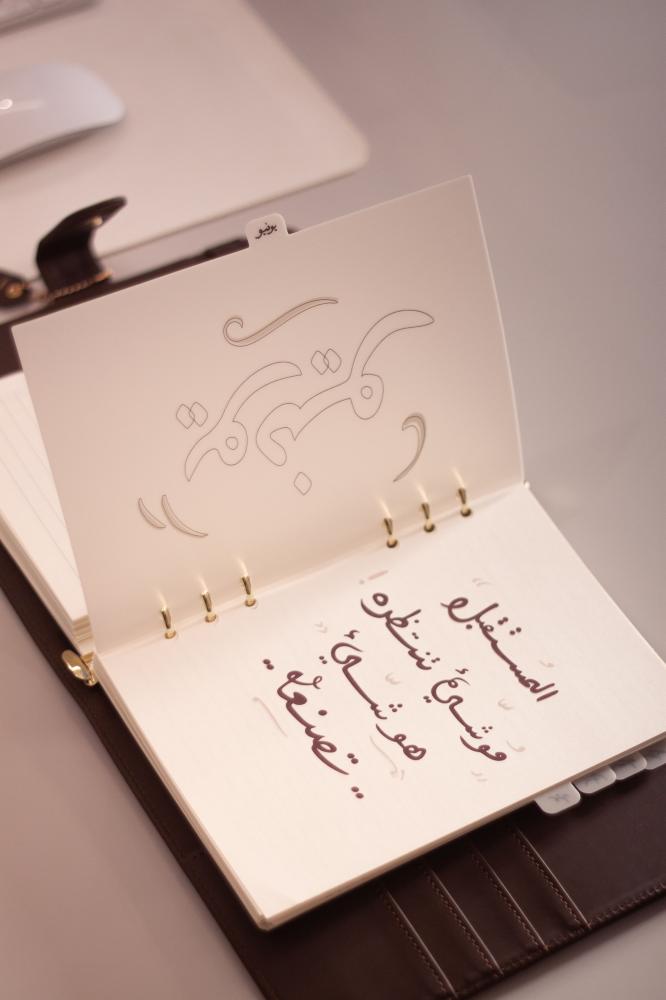 يونيو
المستقبل
مو شيئ تنتظره !
هو شيئ
.. تصنعه ..